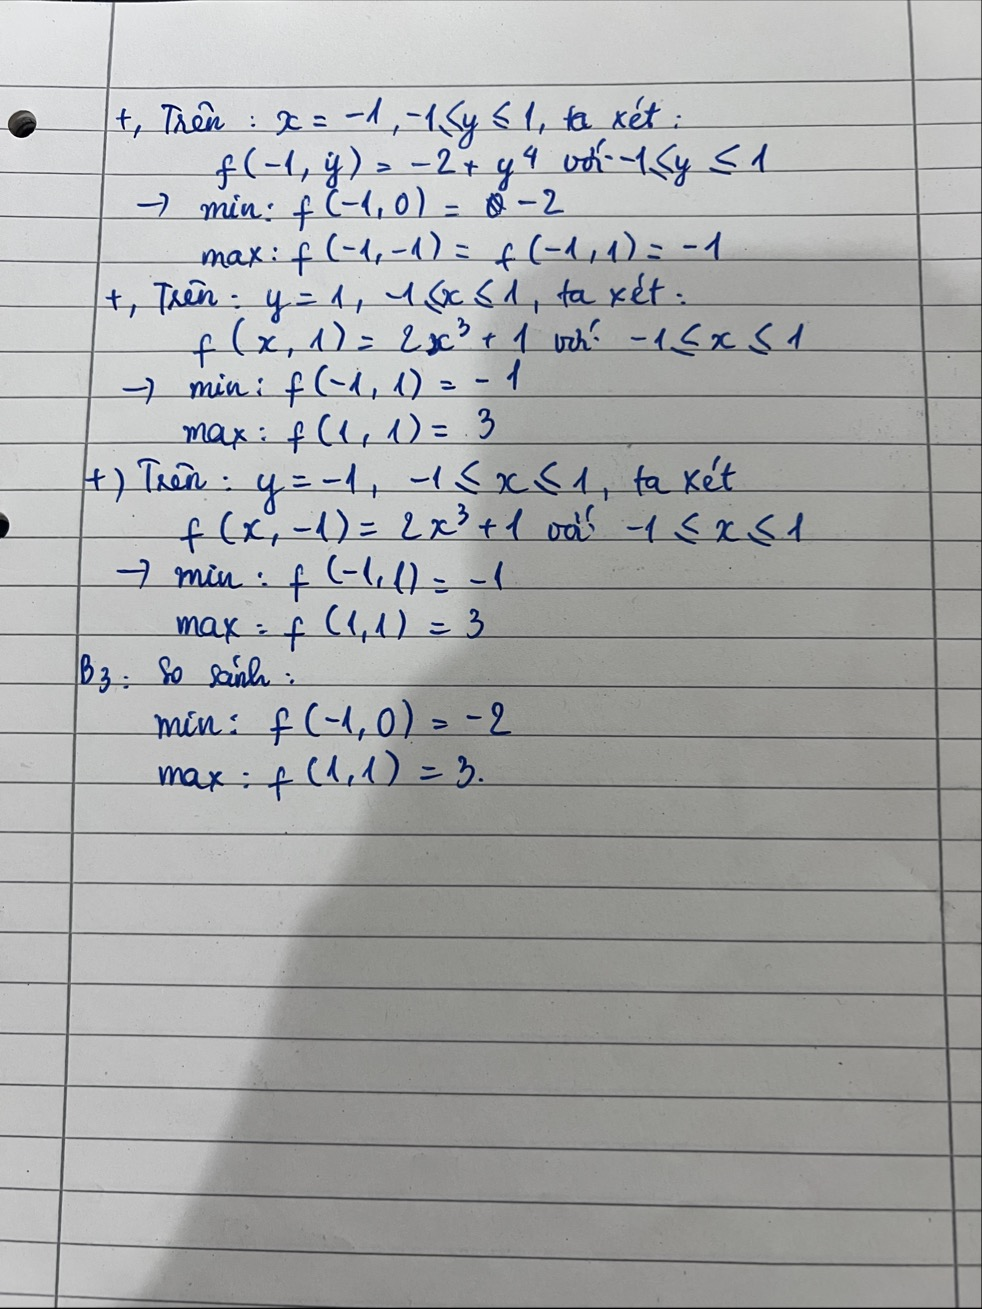 +, Trên : x = -1 , -1 ≤ y ≤ 1, ta xét :
f(-1, y) = -2 + y⁴ với -1 ≤ y ≤ 1
→ min: f(-1,0) = -2
max: f(-1,-1) = f(-1,1) = -1
+, Trên : y = 1, -1 ≤ x ≤ 1, ta xét :
f(x, 1) = 2x³ + 1 với -1 ≤ x ≤ 1
→ min: f(-1, 1) = -1
max: f(1, 1) = 3
+) Trên : y = -1, -1 ≤ x ≤ 1, ta xét
f(x, -1) = 2x³ + 1 với -1 ≤ x ≤ 1
→ min : f(-1,1) = -1
max = f(1,1) = 3
B3: So sánh :
min: f(-1,0) = -2
max : f(1,1) = 3.